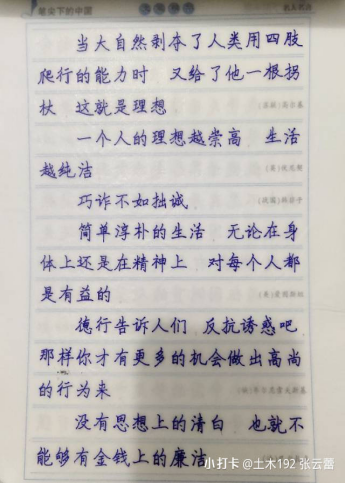 笔尖下的中国
名人名言
当大自然剥夺了人类用四肢
爬行的能力时 又给了他一根拐
杖 这就是理想
(苏联)高尔基
一个人的理想越崇高 生活
越纯洁
巧诈不如拙诚
简单淳朴的生活 无论在身
体上还是在精神上 对每个人都
是有益的
(美)爱因斯坦
德行告诉人们 反抗诱惑吧
那样你才有更多的机会做出高尚
的行为来
没有思想上的清白 也就不
能够有金钱上的廉洁
小打卡@土木192 张云蕾